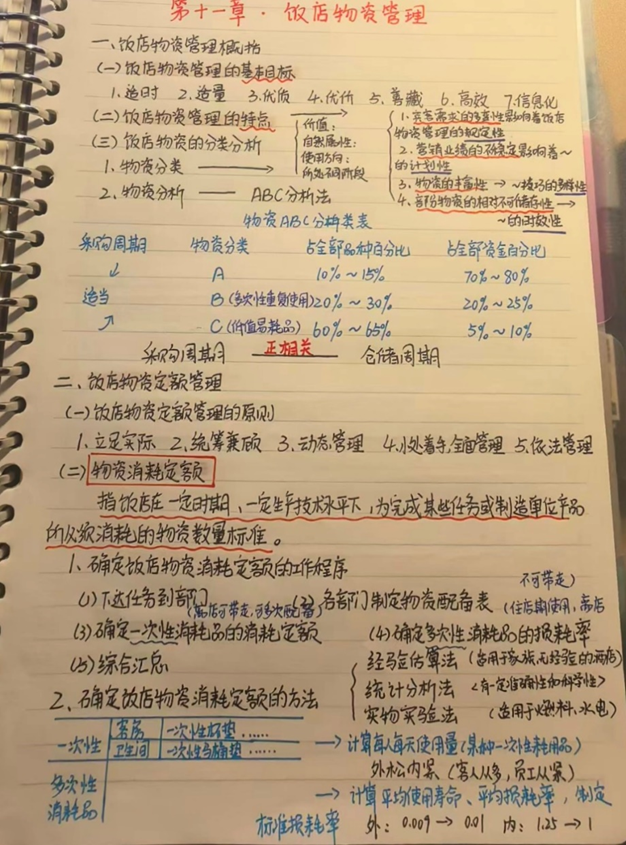 第十一章·饭店物资管理
一、饭店物资管理概括
(一)饭店物资管理的基本目标
1.适时 2.适量 3.优质 4.优价 5.善藏 6.高效 7.信息化
(二)饭店物资管理的特点 1.宾客需求的多样性影响着饭店
物资管理的规定性
2.营销业绩的不稳定影响着~
的计划性
3.物资的丰富性→~技巧的多样性
4.部分物资的相对不可储存性→
~的时效性
(三)饭店物资的分类分析
1.物资分类 → 价值:
自然属性:
使用方向:
所处不同阶段
2.物资分析 —— ABC分析法
物资ABC分类表
采购周期 物资分类 占全部品种百分比 占全部资金百分比
↙ A 10%~15% 70%~80%
适当 B(多次性重复使用) 20%~30% 20%~25%
↗ C(低值易耗品) 60%~65% 5%~10%
采购周期 正相关 仓储周期
二、饭店物资定额管理
(一)饭店物资定额管理的原则
1.立足实际 2.统筹兼顾 3.动态管理 4.小处着手,全面管理 5.依法管理
(二)物资消耗定额
指饭店在一定时期、一定生产技术水平下,为完成某些任务或制造单位产品
所必须消耗的物资数量标准。
1、确定饭店物资消耗定额的工作程序
(1)下达任务到部门 (2)各部门制定物资配备表
(离店可带走,可多次配备) (住店期使用,离店
不可带走)
(3)确定一次性消耗品的消耗定额 (4)确定多次性消耗品的损耗率
(5)综合汇总
2、确定饭店物资消耗定额的方法
经验估算法 (适用于家族,无经验的酒店)
统计分析法 <有一定准确性和科学性>
实物实验法 (适用于燃料、水电)
一次性 客房 一次性杯垫……
卫生间 一次性马桶垫……
→计算每人每天使用量(某种一次性耗用品)
外松内紧(客人从多,员工从紧)
多次性
消耗品 →计算平均使用寿命、平均损耗率,制定
标准损耗率 外:0.009→0.01 内:1.25→1